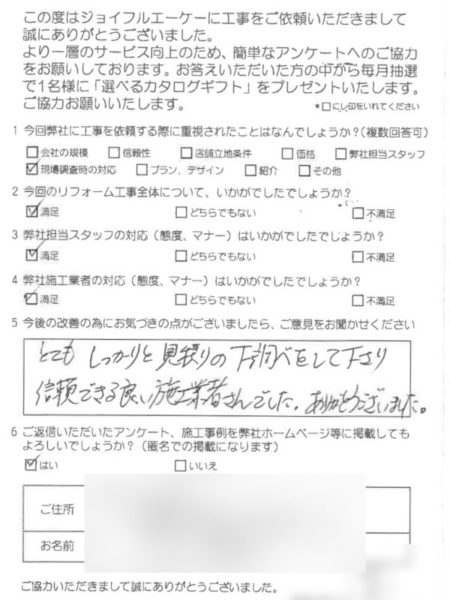 この度はジョイフルエーケーに工事をご依頼いただきまして
誠にありがとうございました。
より一層のサービス向上のため、簡単なアンケートへのご協力
をお願いしております。お答えいただいた方の中から毎月抽選
で1名様に「選べるカタログギフト」をプレゼントいたします。
ご協力お願いいたします。 *□にレ印をいれてください
1 今回弊社に工事を依頼する際に重視されたことはなんでしょうか?(複数回答可)
□会社の規模 □信頼性 □店舗立地条件 □価格 □弊社担当スタッフ
☑現場調査時の対応 □プラン、デザイン □紹介 □その他
2 今回のリフォーム工事全体について、いかがでしたでしょうか?
☑満足 □どちらでもない □不満足
3 弊社担当スタッフの対応(態度、マナー)はいかがでしたでしょうか?
☑満足 □どちらでもない □不満足
4 弊社施工業者の対応(態度、マナー)はいかがでしたでしょうか?
☑満足 □どちらでもない □不満足
5 今後の改善の為にお気づきの点がございましたら、ご意見をお聞かせください
とても しっかりと 見積りの 下調べをして下さり
信頼できる良い施工業者さんでした。ありがとうございました。
6 ご返信いただいたアンケート、施工事例を弊社ホームページ等に掲載しても
よろしいでしょうか?(匿名での掲載になります)
☑はい □いいえ
ご住所
お名前
ご協力いただきまして誠にありがとうございました。